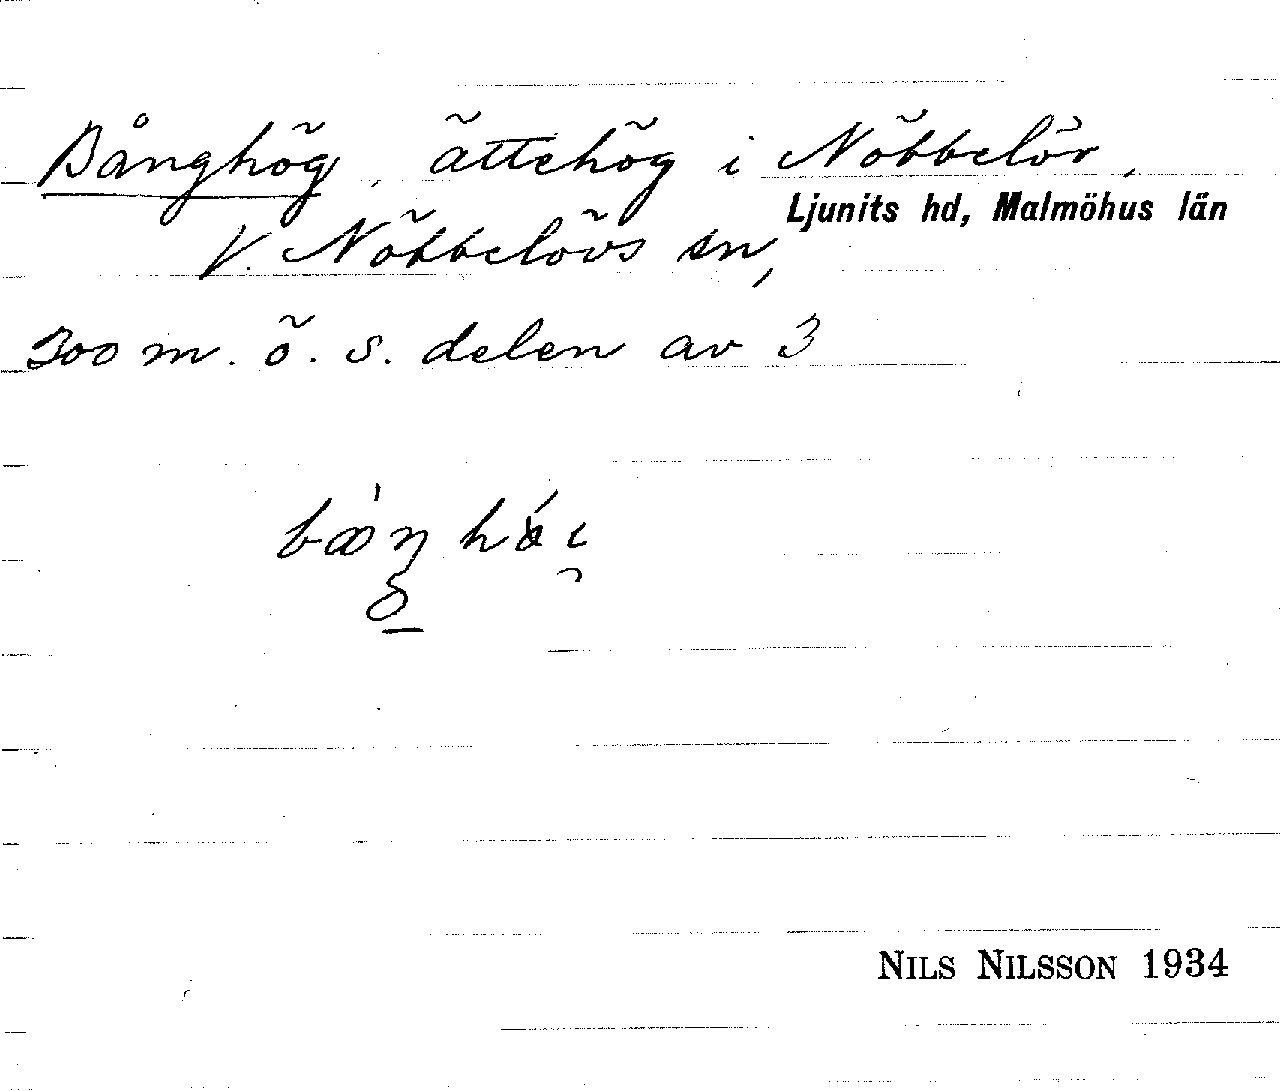 Bånghög, ättehög i Nöbbelöv,
Ljunits hd, Malmöhus län
V. Nöbbelövs sn,
300 m. ö. s. delen av 3
NILS NILSSON 1934